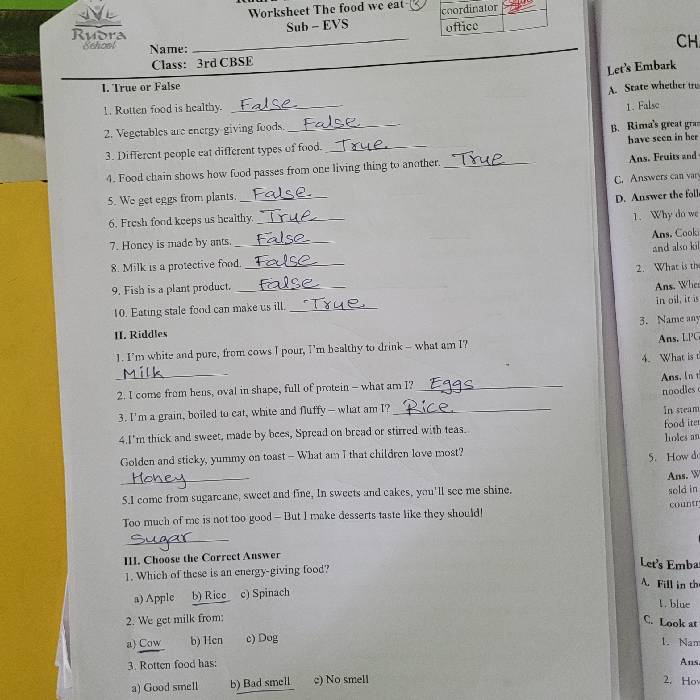 Worksheet The food we eat
Sub – EVS
coordinator
office
Rudra
School
Name:
Class: 3rd CBSE
I. True or False
1. Rotten food is healthy. False
2. Vegetables are energy giving foods. False
3. Different people eat different types of food. True
4. Food chain shows how food passes from one living thing to another. True
5. We get eggs from plants. False
6. Fresh food keeps us healthy. True
7. Honey is made by ants. False
8. Milk is a protective food. False
9. Fish is a plant product. False
10. Eating stale food can make us ill. True
II. Riddles
1. I'm white and pure, from cows I pour, I'm healthy to drink – what am I?
Milk
2. I come from hens, oval in shape, full of protein – what am I? Eggs
3. I'm a grain, boiled to eat, white and fluffy – what am I? Rice
4.I'm thick and sweet, made by bees, Spread on bread or stirred with teas.
Golden and sticky, yummy on toast – What am I that children love most?
Honey
5.I come from sugarcane, sweet and fine, In sweets and cakes, you'll see me shine.
Too much of me is not too good – But I make desserts taste like they should!
Sugar
III. Choose the Correct Answer
1. Which of these is an energy-giving food?
a) Apple b) Rice c) Spinach
2. We get milk from:
a) Cow b) Hen c) Dog
3. Rotten food has:
a) Good smell b) Bad smell c) No smell
CH
Let's Embark
A. State whether tru
1. False
B. Rima's great gran
have seen in her
Ans. Fruits and
C. Answers can vary
D. Answer the foll
1. Why do we
Ans. Cooki
and also kil
2. What is the
Ans. When
in oil, it is
3. Name any
Ans. LPG
4. What is t
Ans. In t
noodles
In steam
food ite
holes an
5. How do
Ans. W
sold in
countr
Let's Emba
A. Fill in the
1. blue
C. Look at
1. Nam
Ans.
2. How